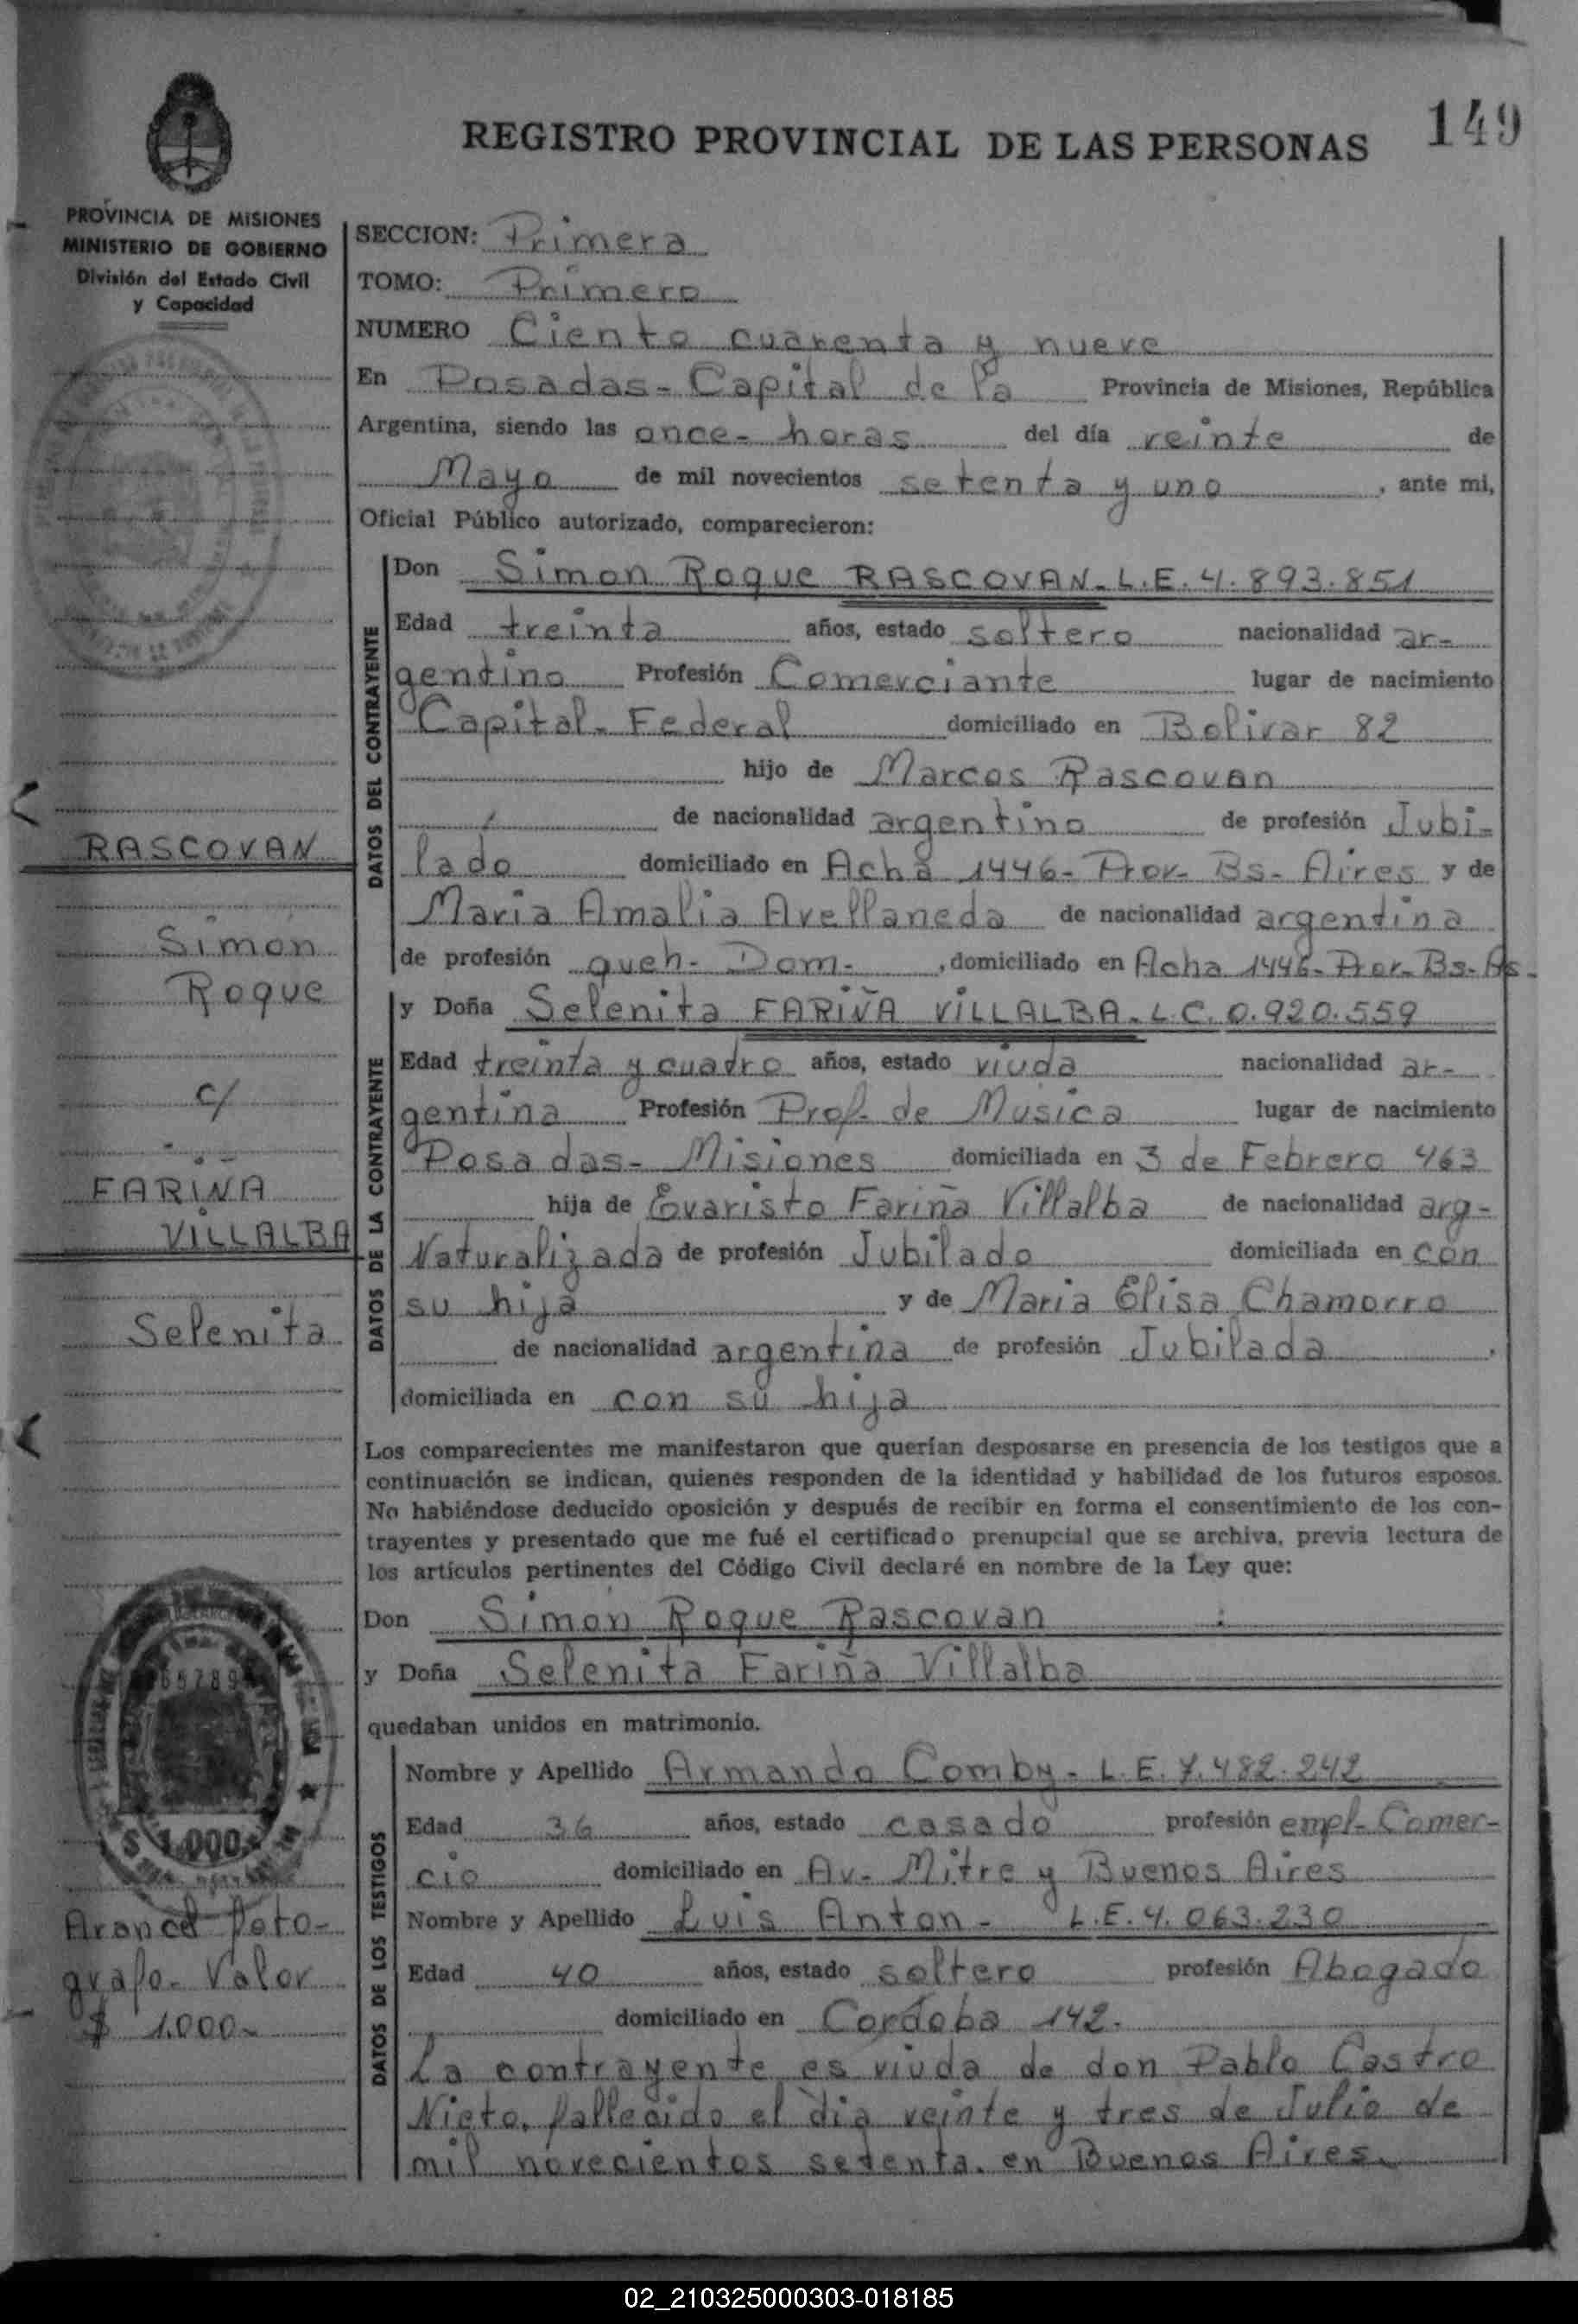 REGISTRO PROVINCIAL DE LAS PERSONAS 149
PROVINCIA DE MISIONES
MINISTERIO DE GOBIERNO
División del Estado Civil
y Capacidad
SECCION: Primera
TOMO: Primero
NUMERO Ciento cuarenta y nueve
En Posadas - Capital de la Provincia de Misiones, República
Argentina, siendo las once - horas del día veinte de
Mayo de mil novecientos setenta y uno, ante mi,
Oficial Público autorizado, comparecieron:
DATOS DEL CONTRAYENTE
Don Simon Roque RASCOVAN - L.E. 4.893.851
Edad treinta años, estado soltero nacionalidad ar-
gentino Profesión Comerciante lugar de nacimiento
Capital - Federal domiciliado en Bolivar 82
hijo de Marcos Rascovan
de nacionalidad argentino de profesión Jubi-
lado domiciliado en Acha 1446 - Prov - Bs - Aires y de
Maria Amalia Avellaneda de nacionalidad argentina
de profesión queh - Dom -, domiciliado en Acha 1446 - Prov - Bs - As -
DATOS DE LA CONTRAYENTE
y Doña Selenita FARIÑA VILLALBA - L.C. 0.920.559
Edad treinta y cuadro años, estado viuda nacionalidad ar-
gentina Profesión Prof - de Musica lugar de nacimiento
Posadas - Misiones domiciliada en 3 de Febrero 463
hija de Evaristo Fariña Villalba de nacionalidad arg -
Naturalizada de profesión Jubilado domiciliada en con
su hija y de Maria Elisa Chamorro
de nacionalidad argentina de profesión Jubilada,
domiciliada en con su hija
Los comparecientes me manifestaron que querían desposarse en presencia de los testigos que a
continuación se indican, quienes responden de la identidad y habilidad de los futuros esposos.
No habiéndose deducido oposición y después de recibir en forma el consentimiento de los con-
trayentes y presentado que me fué el certificado prenupcial que se archiva, previa lectura de
los artículos pertinentes del Código Civil declaré en nombre de la Ley que:
Don Simon Roque Rascovan
y Doña Selenita Fariña Villalba
quedaban unidos en matrimonio.
DATOS DE LOS TESTIGOS
Nombre y Apellido Armando Comby - L.E. 7.482.242
Edad 36 años, estado casado profesión empl - Comer-
cio domiciliado en Av - Mitre y Buenos Aires
Nombre y Apellido Luis Anton - L.E. 4.063.230
Edad 40 años, estado soltero profesión Abogado
domiciliado en Cordoba 142.
La contrayente es viuda de don Pablo Castro
Nieto, fallecido el dia veinte y tres de Julio de
mil novecientos setenta. en Buenos Aires.
RASCOVAN
Simon
Roque
c/
FARIÑA
VILLALBA
Selenita
65789
$ 1.000
Arancel Foto-
grafo - Valor
$ 1.000 -
02_210325000303-018185